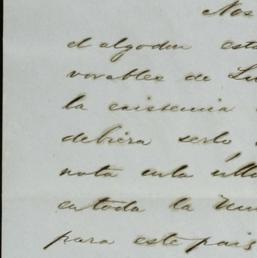 Nos
el algodon est
vorables de
la existencia
debiera serlo
nota en la
en toda la
para este pais